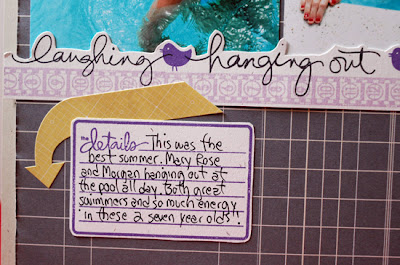 laughing hanging out
the details This was the
best summer. Mary Rose
and Morgan hanging out at
the pool all day. Both great
swimmers and so much energy
in these 2 seven year olds!